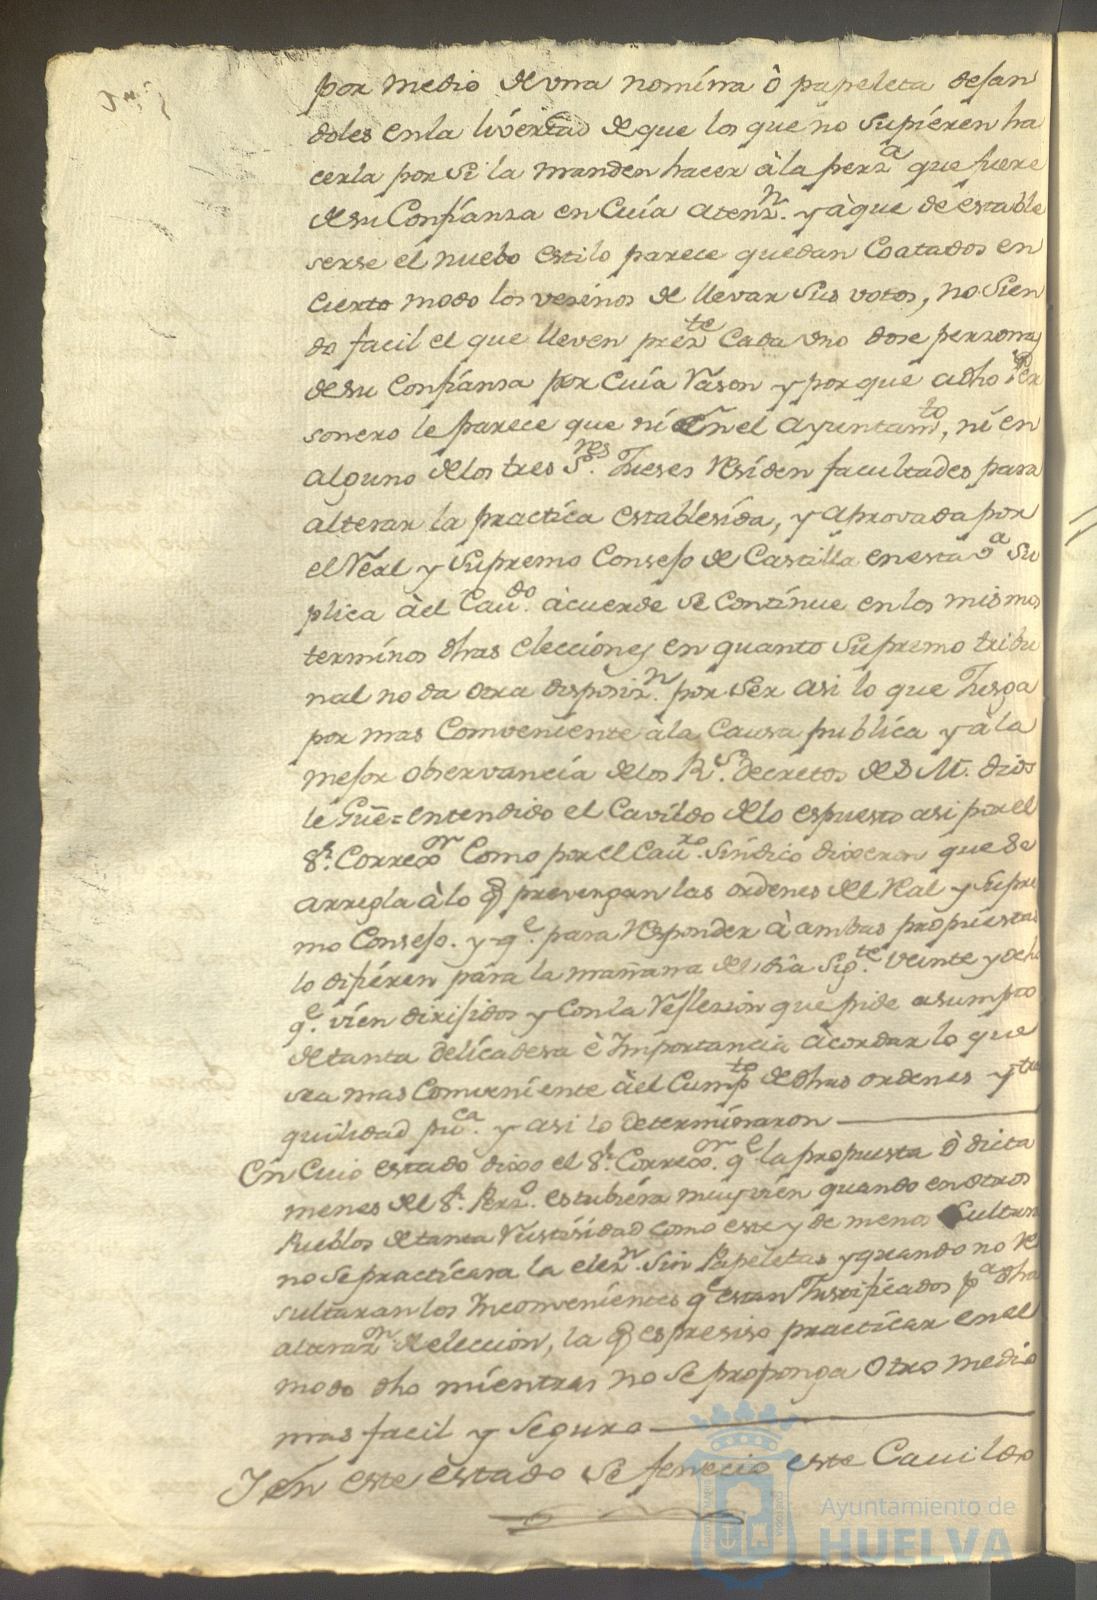 por medio de vna nomína ò papeleta desan
doles enla livertad de que los que no supíeren ha
cerla por si la manden hacer à la perz.ª que fuere
de su Confianza en Cuía atenz.n y àque de estable
serse el nuebo estilo parece quedan Coatados en
Cierto modo los vesinos de llevar sus votos, no sien
do facil el que lleven prez.te Cada vno dose perzonas
de su Confíanza por Cuía rason y porque adho Per
sonero le parece que ni en el Ayuntam.to, ní en
alguno delos tres S.res Jueses residen facultades para
alterar la practíca establesída, y aprovada por
el Real y supremo Conseso de Castilla en esta v.ª su
plica àel Cav.do àcuerde se Contínue en los mismos
termínos dhas elecciónes en quanto supremo tribu
nal no da otra disposiz.n por ser asi lo que Jusga
por mas Comveníente à la Causa publíca y àla
mesor observancía delos R.s decretos de S M. dios
le Gue = entendido el Cavíldo delo espuesto asi por el
S.r Correx.or Como por el Cav.ro Síndico dixeron que se
arregla à lo q prevengan las ordenes del Real y supre
mo Conseso. y q.e para responder à ambas propuestas
lo difíeren para la mañana del día sig.te veinte y ocho
q.e víen dirisidos y Con la reflexion que pide asumpto
de tanta delícadesa è Importancia àcordar lo que
sea mas Comveníente àel Cump.to de dhas ordenes y tran
quilidad pu.ca y asi lo determínaron
En Cuio estado dixo el S.r Correx.or q.e la propuesta ò dicta
menes del S.r Perz.o estubíera muy víen quando en otros
Pueblos de tanta rustisidad como este y de menos Cultura
no se practícara la elez.n sin Papeletas y quando no re
sultaran los Inconveníentes q.e estan Justifícados p.ª dha
alteraz.on de eleccíon, la q es presiso practícar en el
modo dho míentras no se proponga otro medio
mas facil y seguro
Y en este estado se fenecio este Cavildo
Ayuntamiento de
HUELVA